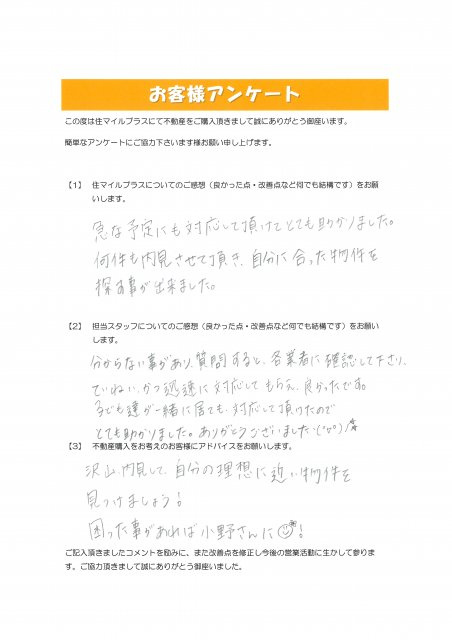 お客様アンケート
この度は住マイルプラスにて不動産をご購入頂きまして誠にありがとう御座います。
簡単なアンケートにご協力下さいます様お願い申し上げます。
【1】 住マイルプラスについてのご感想（良かった点・改善点など何でも結構です）をお願
いします。
急な予定にも対応して頂けてとても助かりました。
何件も内見させて頂き、自分に合った物件を
探す事が出来ました。
【2】 担当スタッフについてのご感想（良かった点・改善点など何でも結構です）をお願い
します。
分からない事があり、質問すると、各業者に確認して下さり、
ていねい、かつ迅速に対応してもらえ、良かったです。
子ども達が一緒に居ても、対応して頂けたので
とても助かりました。ありがとうございました(^o^)/☆
【3】 不動産購入をお考えのお客様にアドバイスをお願いします。
沢山、内見して、自分の理想に近い物件を
見つけましょう！
困った事があれば小野さんに☺！
ご記入頂きましたコメントを励みに、また改善点を修正し今後の営業活動に生かして参りま
す。ご協力頂きまして誠にありがとう御座いました。